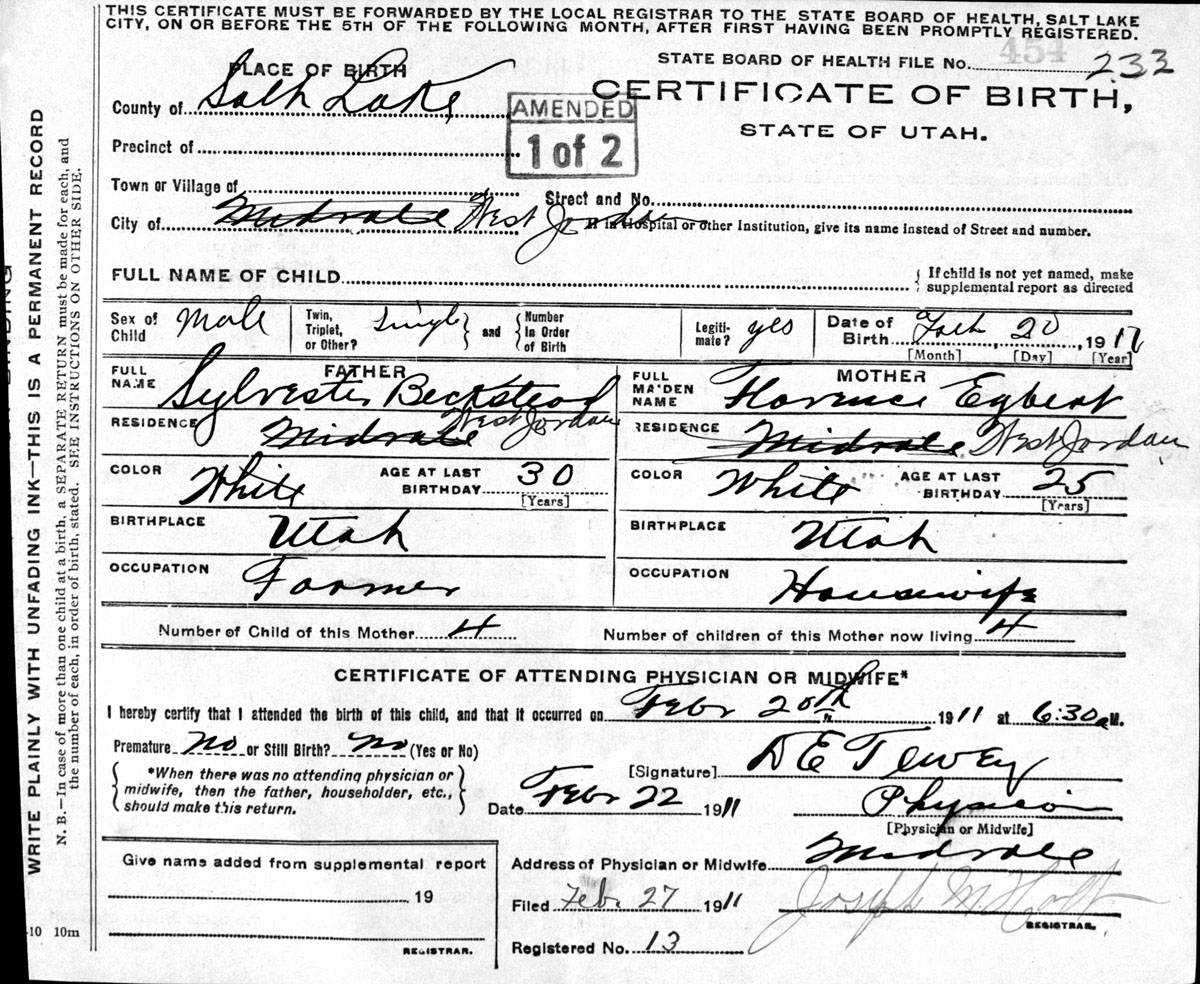 THIS CERTIFICATE MUST BE FORWARDED BY THE LOCAL REGISTRAR TO THE STATE BOARD OF HEALTH, SALT LAKE
CITY, ON OR BEFORE THE 5TH OF THE FOLLOWING MONTH, AFTER FIRST HAVING BEEN PROMPTLY REGISTERED.
454
STATE BOARD OF HEALTH FILE No. 233
PLACE OF BIRTH
CERTIFICATE OF BIRTH,
STATE OF UTAH.
County of Salt Lake
AMENDED
1 of 2
Precinct of
Town or Village of
Street and No.
City of Midvale West Jordan
If in Hospital or other Institution, give its name instead of Street and number.
FULL NAME OF CHILD
{ If child is not yet named, make
supplemental report as directed
Sex of Child Male
Twin, Triplet, or Other? Single } and { Number in Order of Birth
Legitimate? yes
Date of Birth 20 1911
[Month] [Day] [Year]
FATHER
FULL NAME Sylvester Beckstead
RESIDENCE Midvale West Jordan
COLOR White AGE AT LAST BIRTHDAY 30
[Years]
BIRTHPLACE Utah
OCCUPATION Farmer
MOTHER
FULL MAIDEN NAME Florence Egbert
RESIDENCE Midvale West Jordan
COLOR White AGE AT LAST BIRTHDAY 25
[Years]
BIRTHPLACE Utah
OCCUPATION Housewife
Number of Child of this Mother 4 Number of children of this Mother now living 4
CERTIFICATE OF ATTENDING PHYSICIAN OR MIDWIFE*
I hereby certify that I attended the birth of this child, and that it occurred on Febr 20th 1911 at 6:30 a M.
Premature No or Still Birth? No (Yes or No)
{ *When there was no attending physician or
midwife, then the father, householder, etc.,
should make this return. }
[Signature] D E Tewey
Date Febr 22 1911 Physician
[Physician or Midwife]
Give name added from supplemental report
19
REGISTRAR.
Address of Physician or Midwife Midvale
Filed Feb. 27 1911 Joseph M. Holt
REGISTRAR.
Registered No. 13
WRITE PLAINLY WITH UNFADING INK—THIS IS A PERMANENT RECORD
N. B.—In case of more than one child at a birth, a SEPARATE RETURN must be made for each, and
the number of each, in order of birth, stated. SEE INSTRUCTIONS ON OTHER SIDE.
-10 10m